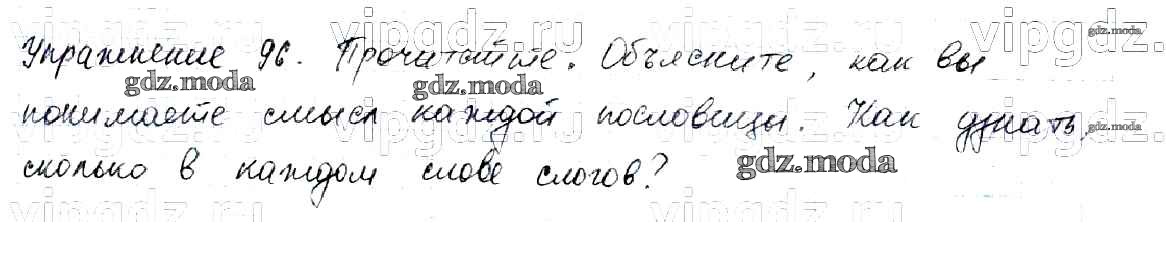 vipgdz.ru vipgdz.ru vipgdz.ru vipgdz.
Упражнение 96. Прочитайте. Объясните, как вы
gdz.moda gdz.moda gdz.moda
понимаете смысл каждой пословицы. Как узнать,
gdz.moda gdz.moda
сколько в каждом слове слогов?
vipgdz.ru vipgdz.ru vipgdz.ru vipgdz.